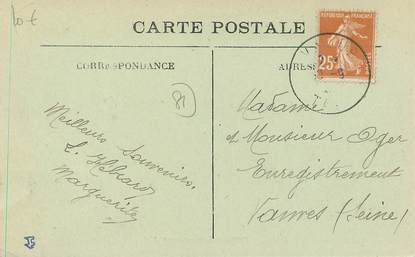 10 €
CARTE POSTALE
CORRESPONDANCE
ADRESSE
REPUBLIQUE FRANÇAISE
25c
81
Meilleurs Souvenirs.
Marguerite
Madame
et Monsieur Oger
Enregistrement
Vanves (Seine)